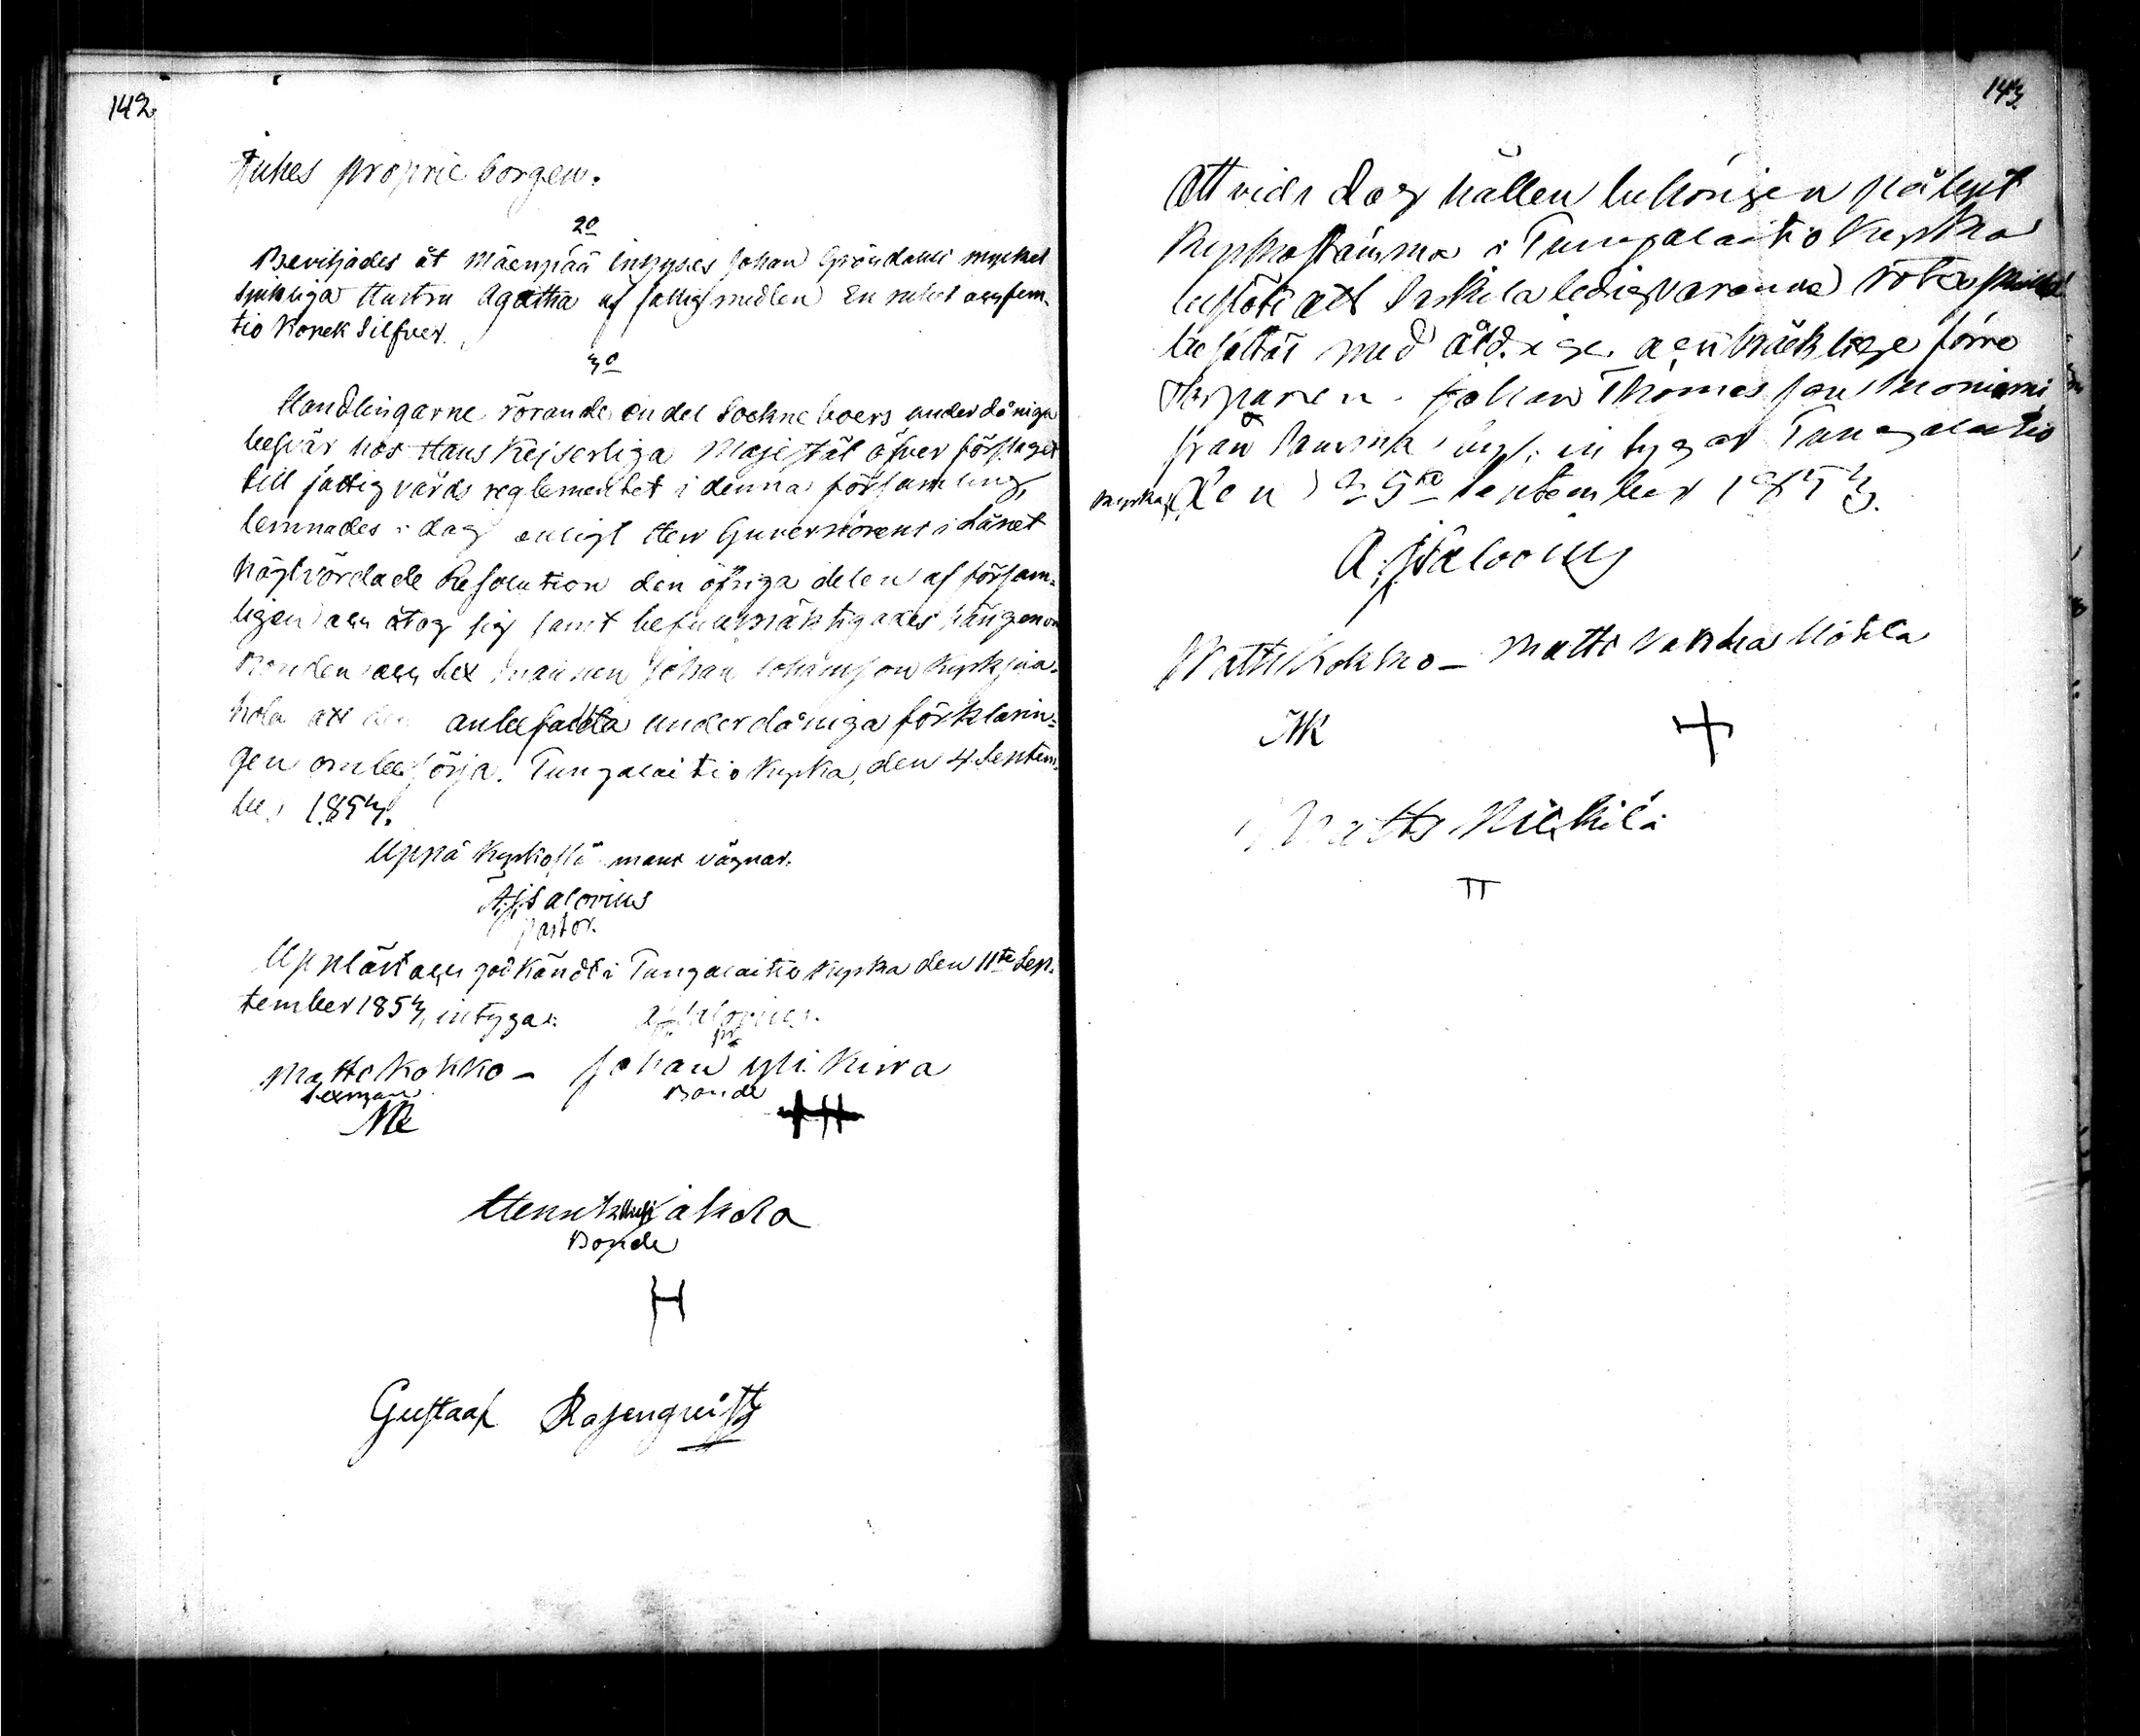 142.
Jukes proprie borgen.
2o
Beviljades åt Mäenpää inhyses Johan Gröndahls mycket
sjukliga Hustru Agatha af fattigmedlen En rubel och fem-
tio Kopek Silfver.
3o
Handlingarne rörande en del Sockneboers underdåniga
besvär hos Hans Kejserliga Majestät öfver förslaget
till fattigvårds reglementet i denna församling,
lemnades i dag enligt Herr Guvernörens i Länet
högtvördade Resolution den öfriga delen af försam-
ligen och åtog sig samt befullmäktigades
Bonden och Sexmannen Johan Johansson Kyrkjna-
kola att den anbefallda underdåniga förklarin-
gen ombesörja. Tungalaitio Kyrka, den 4 Septem-
ber 1853.
Uppå Kyrkostämmans vägnar.
A. J. Salovius
Pastor.
Uppläst och godkändt i Tungalaitio Kyrka den 11te Sep-
tember 1853, intygar. A. J. Salovius.
Matts Kokko – Johan Yli Kirra
Sexman Bonde
MK
Henrik akola
Bonde
H
Gustaaf Rosenqvist
143.
Att vid i dag hållen behörigen pålyst
Kyrkostämma i Tungalaitio Kyrka
beslöts att Saskila ledigvarande rote
besättas med åldrige och bräcklige förre
Torparen Johan Thomasson Moniemi
från intygar Tungalaitio
Kyrka, den 25te September 1853.
A. J. Salovius
Matts Kokko – Matts Vanha Höhla
MK +
Matts Nickilä
TT